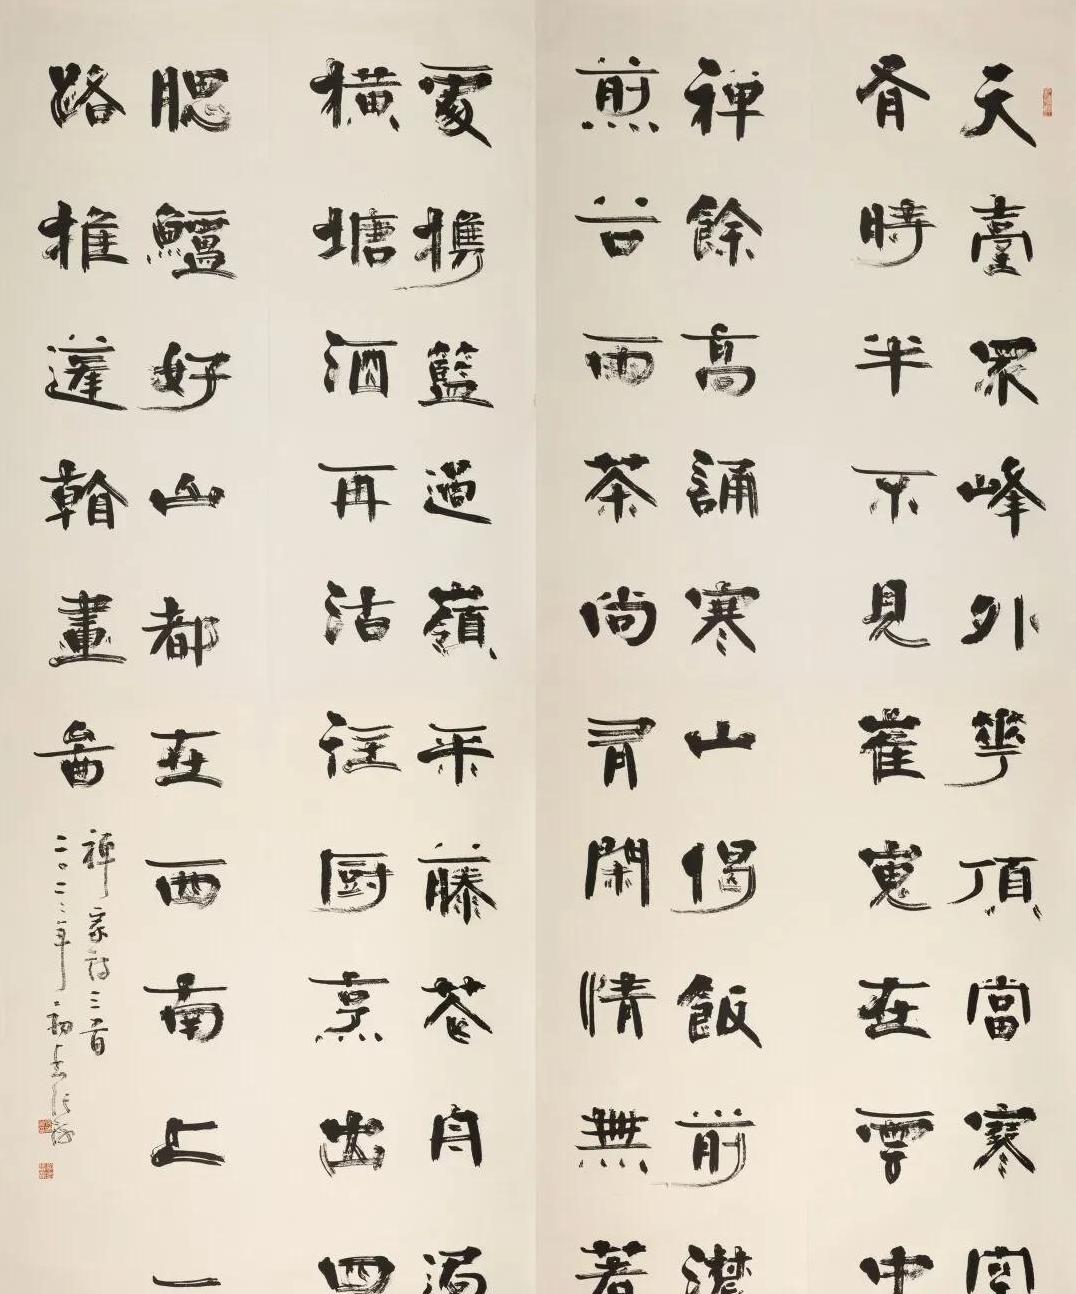 天臺眾峰外華頂當寒空
有時半不見崔嵬在雲中
禪餘高誦寒山偈飯前濃
煎谷雨茶尚有閑情無著
處攜籃過嶺采藤花舟泊
橫塘酒再沽往厨烹出四
腮鱸好山都在西南上一
路推蓬看畫啚
禪家詩三首
二〇二二年